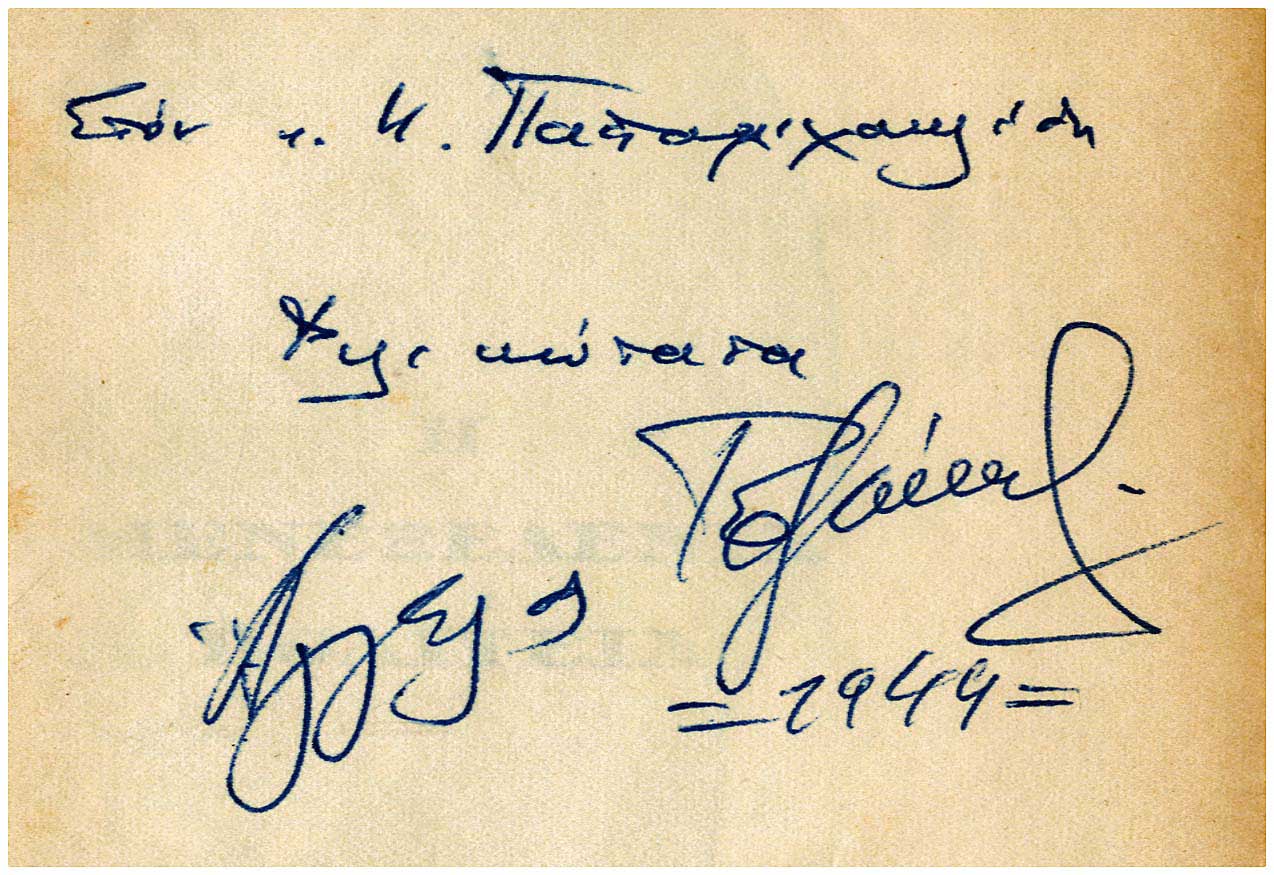 Στόν κ. Κ. Παπαμιχαηλίδη
Φιλικώτατα
Ἄγγελος Τερζάκης
=1944=